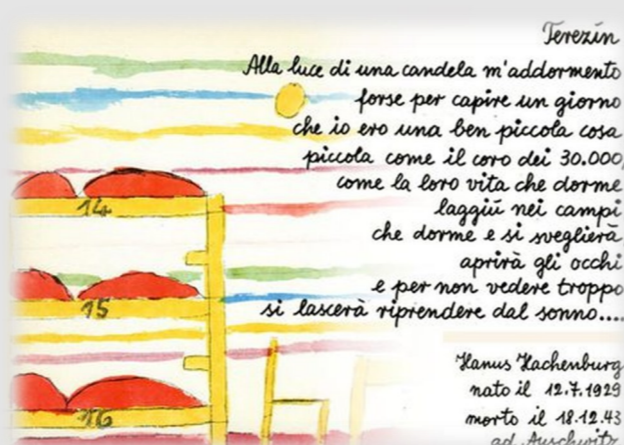 Terezín
Alla luce di una candela m'addormento
forse per capire un giorno
che io ero una ben piccola cosa
piccola come il coro dei 30.000,
come la loro vita che dorme
laggiú nei campi
che dorme e si sveglierà
aprirà gli occhi
e per non vedere troppo
si lascerà riprendere dal sonno....
Hanus Hachenburg
nato il 12.7.1929
morto il 18.12.43
ad Auschwitz
14
15
16